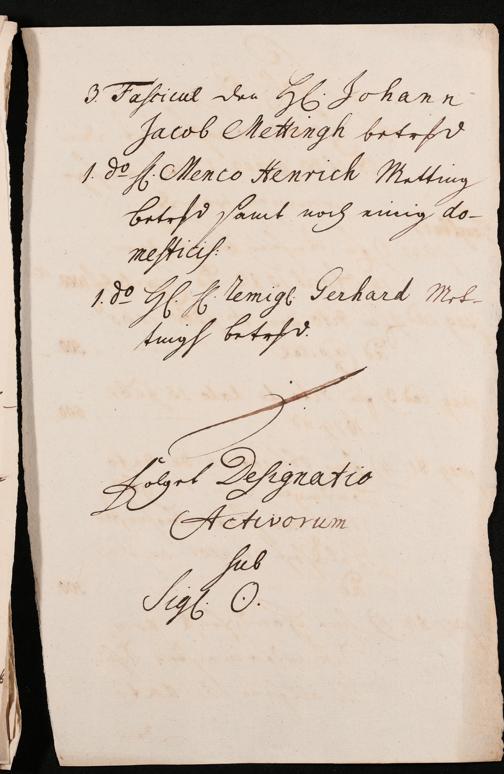 3. Fascicul den H: Johann
Jacob Mettingh betrfd
1. do H: Menco Henrich Metting
betrfd samt noch einig do-
mesticis.
1. do H: H: Remigi: Gerhard Met-
tingh betrfd.
Folget Designatio
Activorum
sub
Sigl: O.